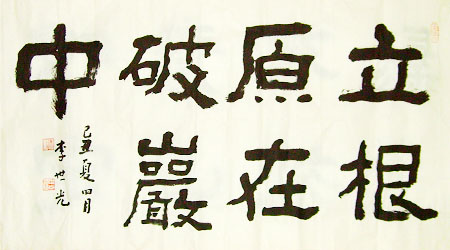 立根
原在
破巖
中
己丑夏四月
李世光